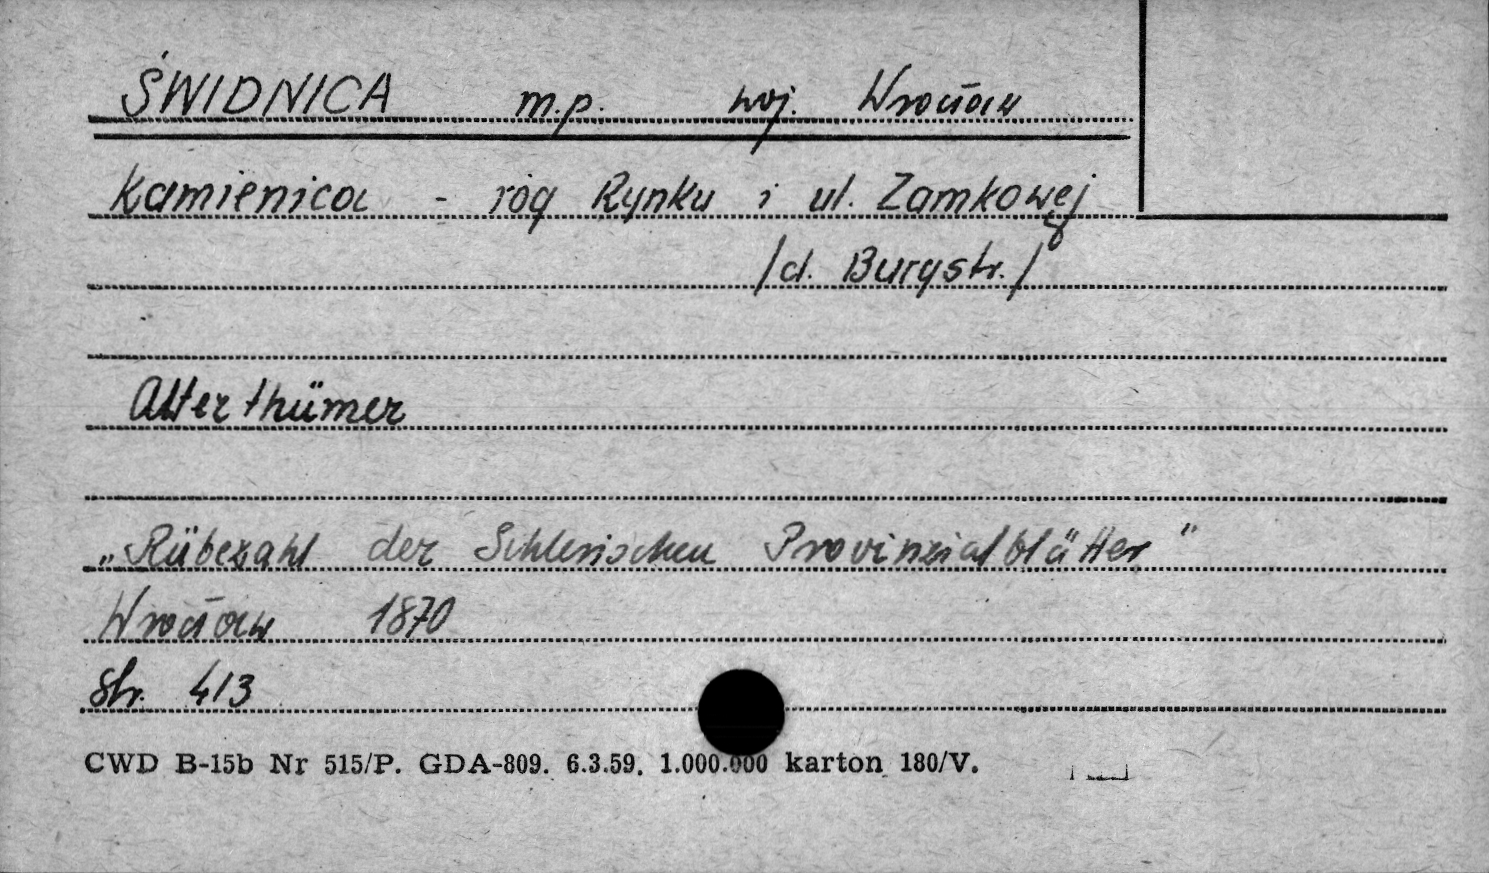 ŚWIDNICA m.p. woj. Wrocław
Kamienica - róg Rynku i ul. Zamkowej
/d. Burgstr./
Alterthümer
„Rübezahl der Schlesischen Provinzialblätter"
Wrocław 1870
Str. 413
CWD B-15b Nr 515/P. GDA-809. 6.3.59. 1.000.000 karton 180/V.